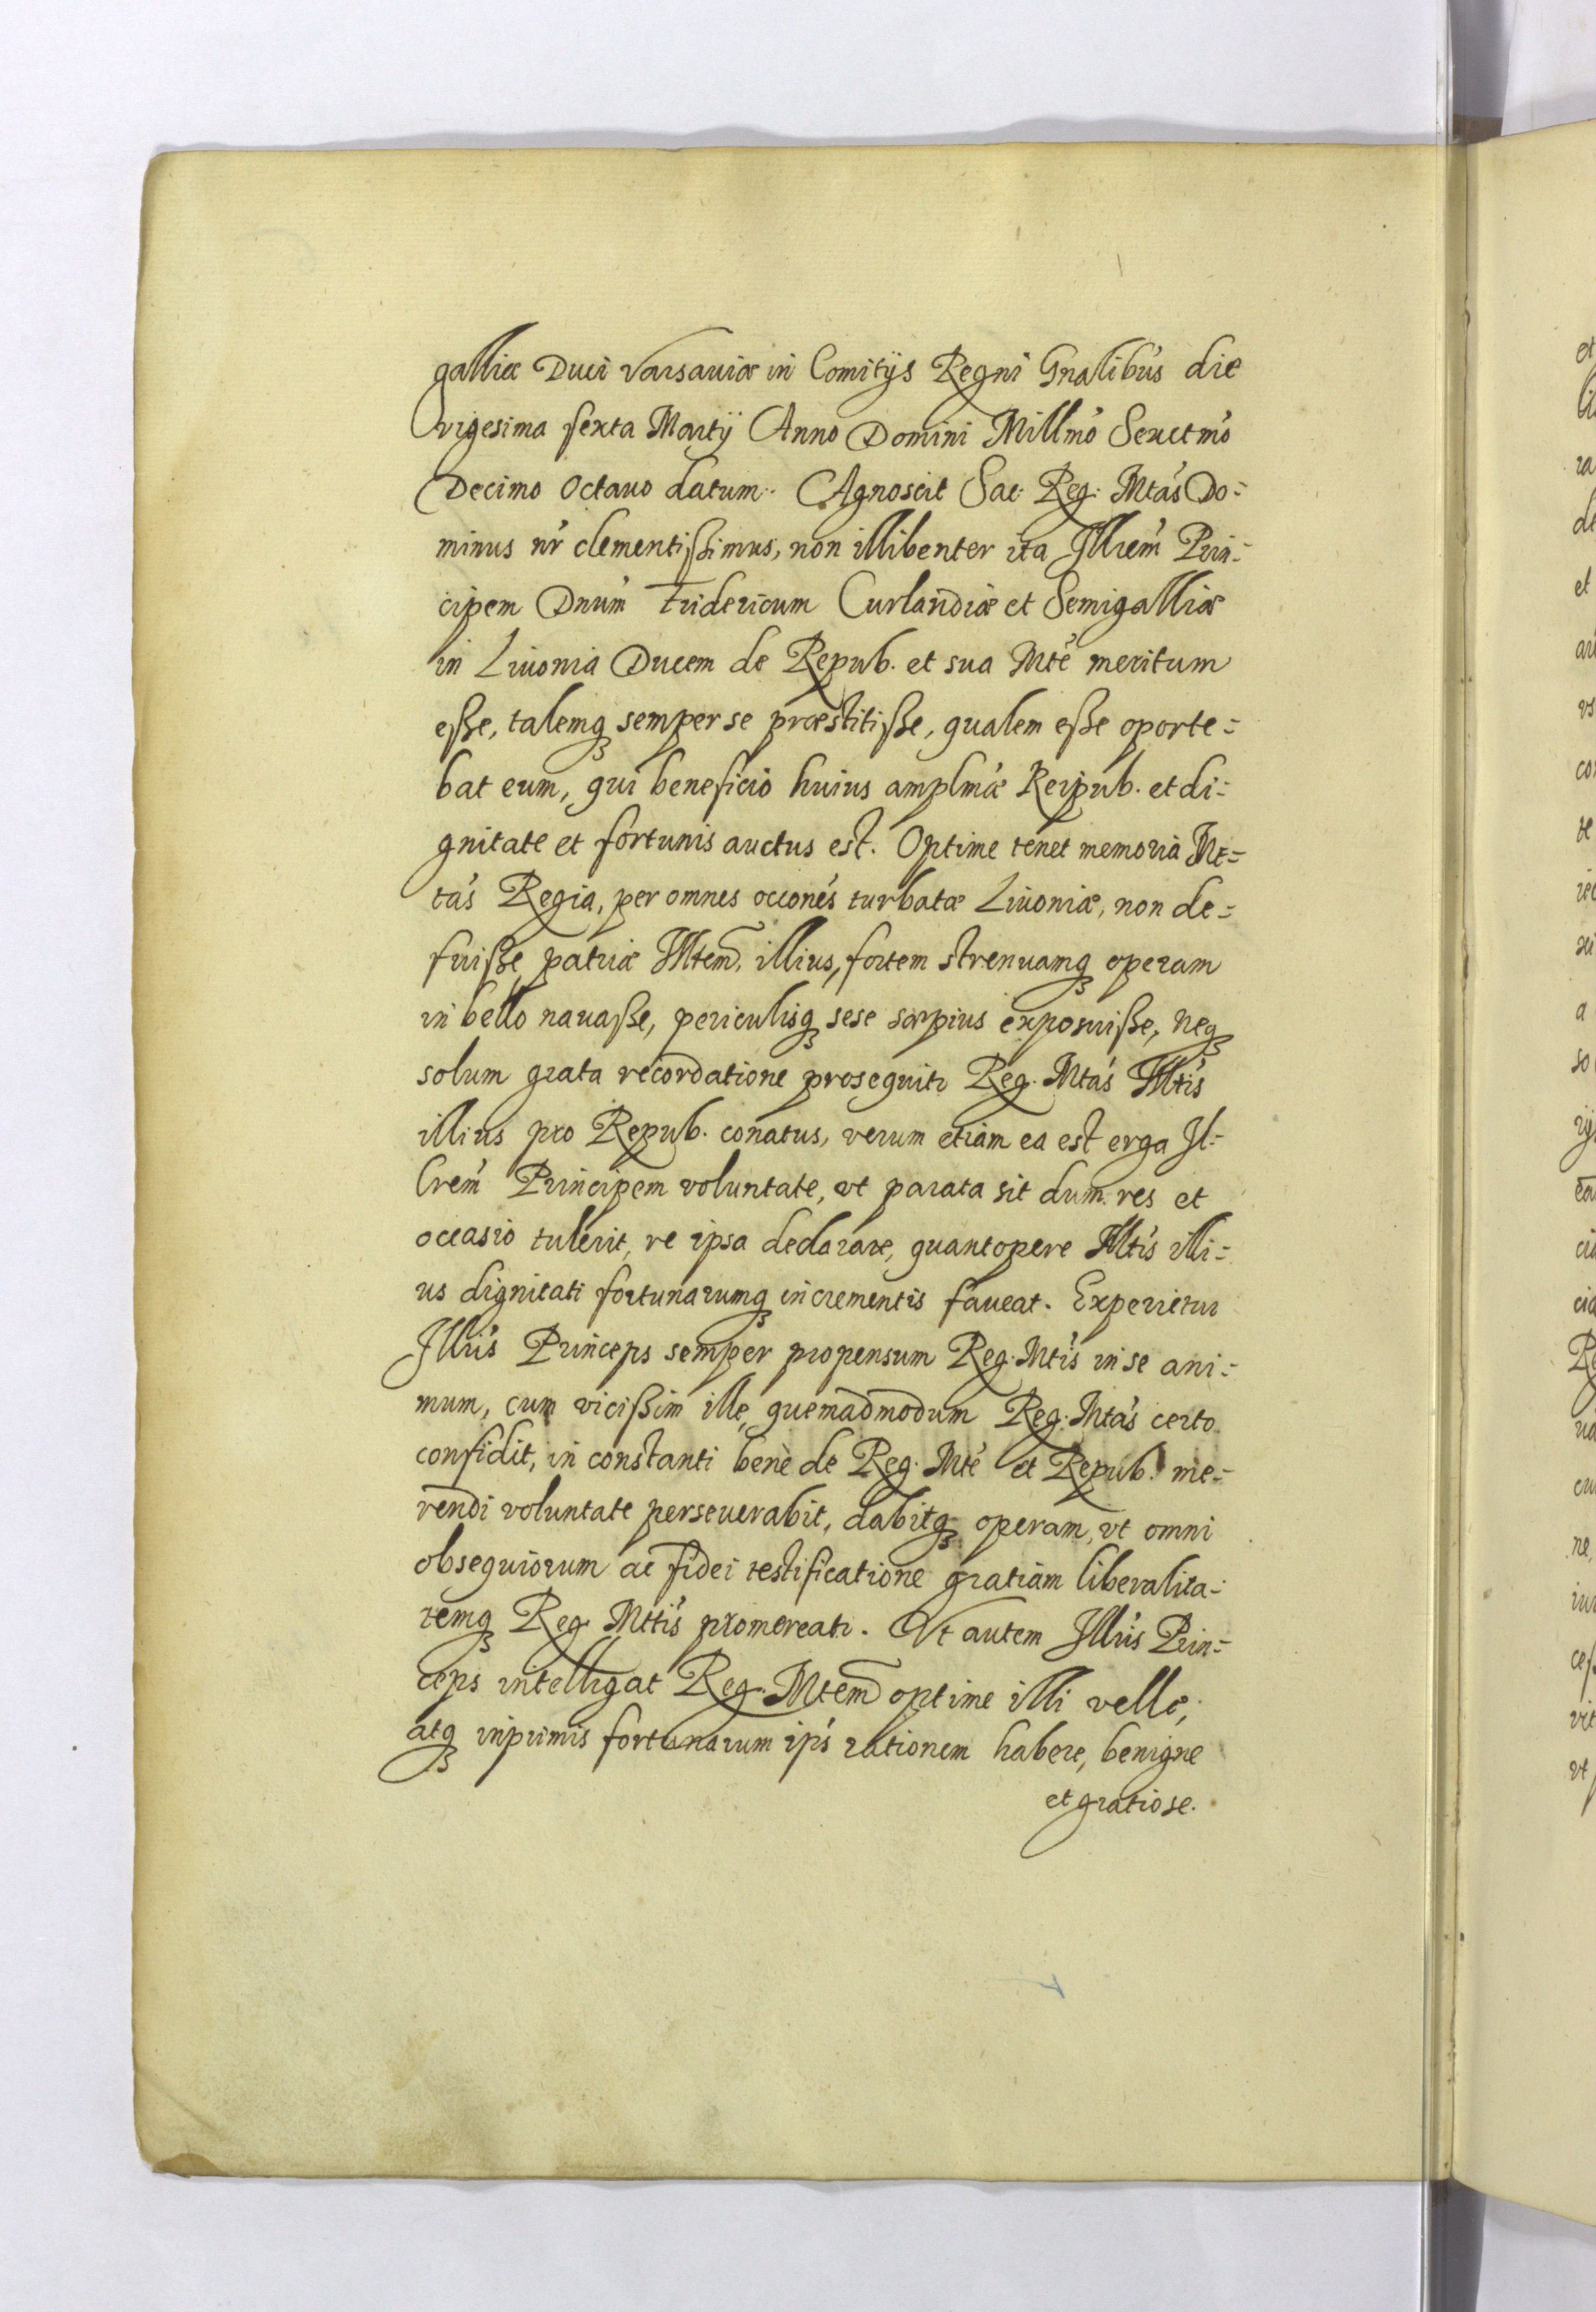 galliæ Duci Varsaviæ in Comitijs Regni Gnalibús die
vigesima sexta Martij Anno Domini Millmó Sexctmó
Decimo Octauo datum. Agnoscit Sac. Reg. Mtás Do=
minus nr clementißimus, non illibenter ita Illrem Prin=
cipem Dnum Fridericum Curlandiæ et Semigalliæ
in Liuonia Ducem de Repub. et sua Mte meritum
eße, talemq semper se præstitiße, qualem eße oporte=
bat eum, qui beneficio huius amplmæ Reipub. et di=
gnitate et fortunis auctus est. Optime tenet memoria M=
tás Regia, per omnes occones turbatæ Liuoniæ, non de=
fuiße patriæ Illtem illius, fortem strenuamq operam
in bello nauaße, periculisq sese sæpius exposuiße, neq
solum grata recordatione prosequitr Reg. Mtás Illtis
illius pro Repub. conatus, verum etiam ea est erga Il=
lrem Principem voluntate, vt parata sit dum res et
occasio tulerit, re ipsa declarare, quantopere Illtis illi=
us dignitati fortunarumq incrementis faueat. Experietur
Illris Princeps semper propensum Reg. Mtis in se ani=
mum, cum vicißim ille, quemadmodum Reg. Mtás certo
confidit, in constanti bene de Reg. Mte et Repub. me=
rendi voluntate perseuerabit, dabitq operam, vt omni
obsequiorum ac fidei testificatione gratiam liberalita=
temq Reg. Mttis promereatr. Vt autem Illris Prin=
ceps intelligat Reg. Mtem optime illi velle,
atq inprimis fortunarum ips rationem habere, benigne
et gratiose.